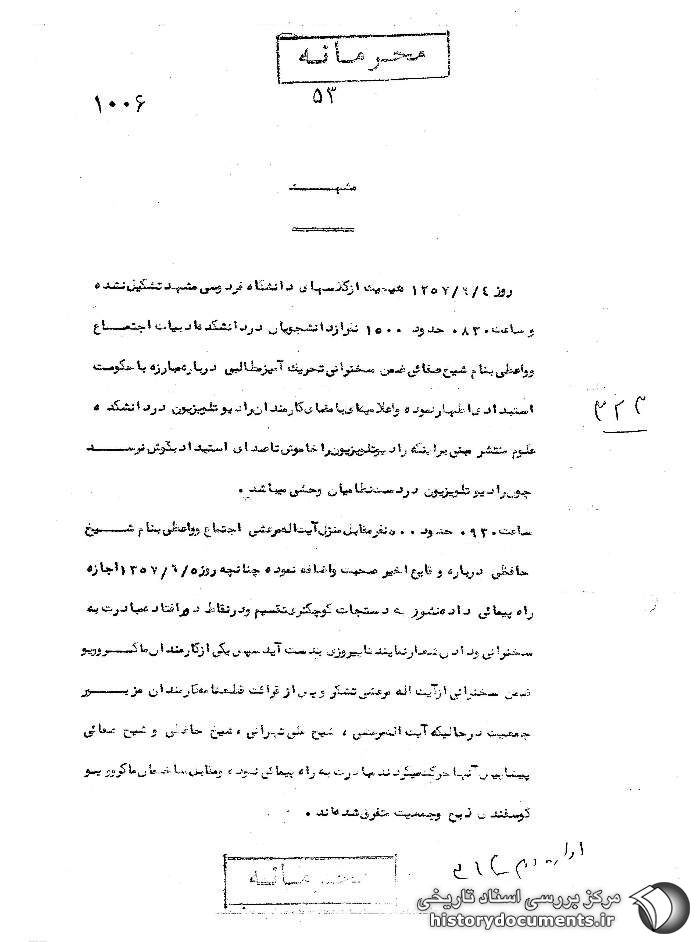 محرمانه
۵۳
۱۰۰۶
مشهد
روز ۱۳۵۷/۶/۴ هیچیک از کلاسهای دانشگاه فردوسی مشهد تشکیل نشده
و ساعت ۰۸۳۰ حدود ۱۵۰۰ نفر از دانشجویان در دانشکده ادبیات اجتماع
و واعظی بنام شیخ صفائی ضمن سخنرانی تحریک آمیز مطالبی درباره مبارزه با حکومت
استبدادی اظهار نموده و اعلامیه‌ای با مضای کارمندان رادیو تلویزیون در دانشکده
۳۲۳
علوم منتشر مبنی بر اینکه رادیو تلویزیون را خاموش تا صدای استبداد بگوش نرسد
چون رادیو تلویزیون در دست نظامیان وحشی میباشد .
ساعت ۰۹۳۰ حدود ۵۰۰ نفر مقابل منزل آیت اله مرعشی اجتماع و واعظی بنام شیخ
حافظی درباره وقایع اخیر صحبت و اضافه نموده چنانچه روز ۱۳۵۷/۶/۵ اجازه
راه پیمائی داده نشود به دستجات کوچکتری تقسیم و در نقاط دور افتاده مبادرت به
سخنرانی و دادن شعار نمایند تا پیروزی بدست آید سپس یکی از کارمندان ماکروویو
ضمن سخنرانی از آیت اله مرعشی تشکر و پس از قرائت قطعنامه کارمندان مزبور
جمعیت در حالیکه آیت اله مرعشی ، شیخ علی تهرانی ، شیخ حافظی و شیخ صفائی
پیشاپیش آنها حرکت میکردند مبادرت به راه پیمائی نموده و مقابل ساختمان ماکروویو
گوسفندی ذبح و جمعیت متفرق شده‌اند .
محرمانه
مرکز بررسی اسناد تاریخی
historydocuments.ir